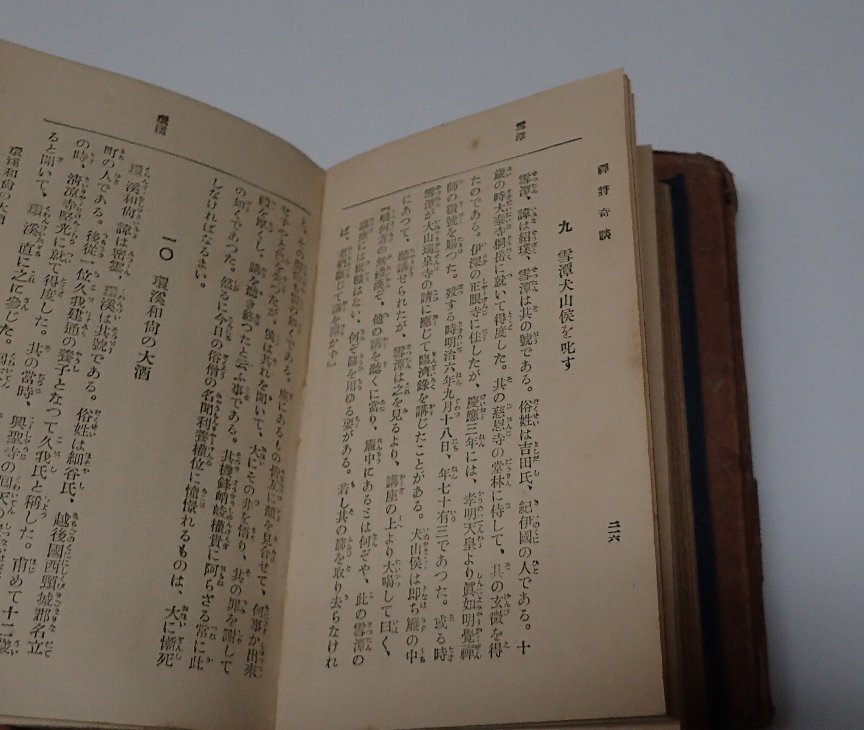 禪將奇談
二一六
雪潭
九 雪潭犬山侯を叱す
雪潭、諱は紹璞、雪潭は其の號である。俗姓は吉田氏、紀伊國の人である。十
歲の時大泰寺桐岳に就いて得度した。其の慈恩寺の堂林に侍して、其の玄微を得
たのである。伊深の正眼寺に住したが、慶應三年には、孝明天皇より眞如明覺禪
師の徽號を賜つた。歿する時明治六年九月十八日、年七十有三であつた。或る時
雪潭が犬山瑞泉寺の請に應じて臨濟錄を講じたことがある。犬山侯は即ち簾の中
にあつて、聽講せられたが、雪潭は之を見るより、講座の上より大喝して曰く、
『何者の無禮漢ぞ、他の講を聽くに當り、簾中にあるとは何ぞや、此の雪潭の
講座には はない、何ぞ を用ゆる要がある。若し其の を取り去らなけれ
ば、老衲斷じて講を開かず』
環溪
と、その の如くである。座にあるもの皆互に顏を見合せて、何事か出來
せずやと色を失つたが、侯は其れを聞いて、大にその非を悟り、其の罪を謝して
を厚うし、講を聽き終つたと云ふ事である。其機鋒峭峻權貴に阿らざる常に此
の如くであつた。然るに今日の俗僧の名聞利養權位に憧憬れるものは、大に慚死
しなければなるまい。
一〇 環溪和尙の大酒
環溪和尙、諱は密雲、環溪は其號である。俗姓は細谷氏、越後國西頸城郡名立
町の人である。後從一位久我建通の養子となつて久我氏と稱した。甫めて十二歲
の時、淸凉寺堅光に就て得度した。其の當時、興聖寺の回天の
ると聞いて、環溪直に之に參じた。
環溪和尙の大酒